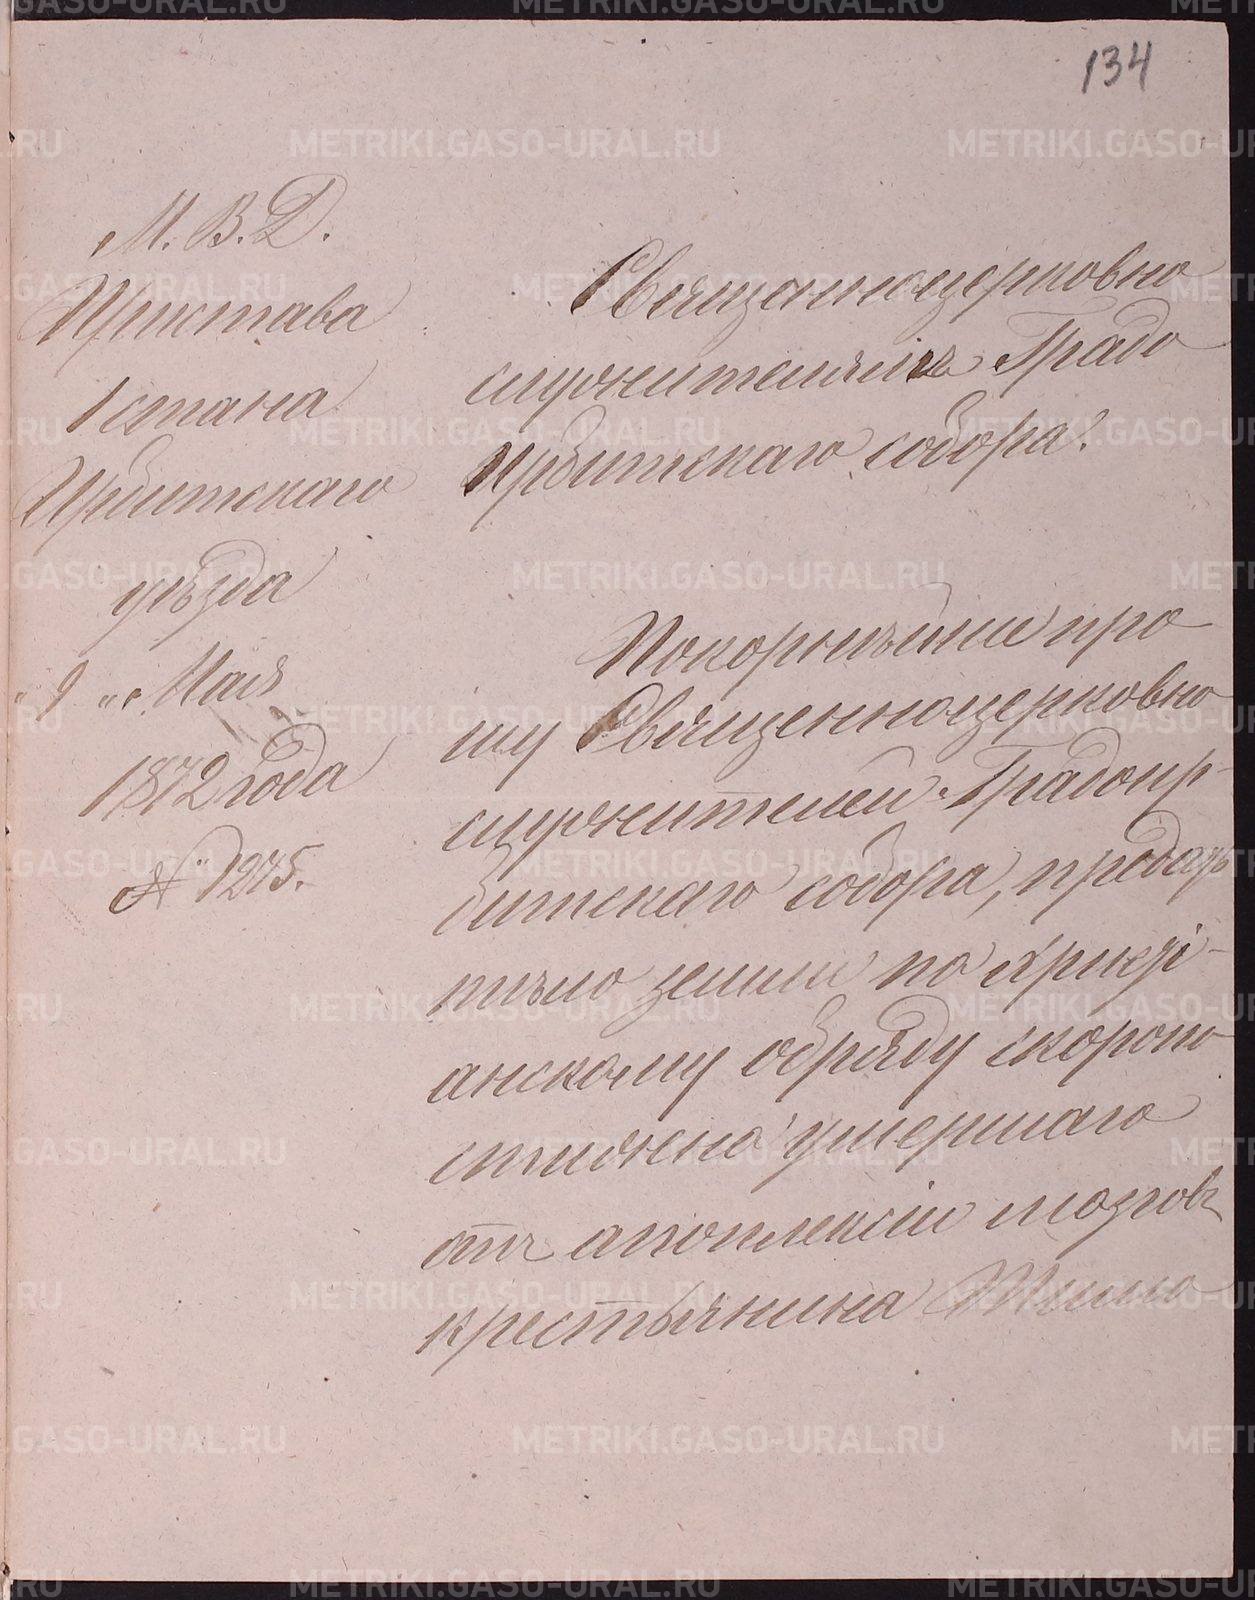 134
М. В. Д.
Пристава
1 стана
Ирбитскаго
уѣзда
"9" Мая
1872 года
№ 1275.
Священноцерковно
служителямъ Градо
Ирбитскаго собора.
Покорнѣйше про
шу Священноцерковно
служителей Градоир-
битскаго собора, предать
тѣло земли по христі-
анскому обряду скоропо
стижно умершаго
отъ апоплексіи мозгов
крестьянина
METRIKI.GASO-URAL.RU